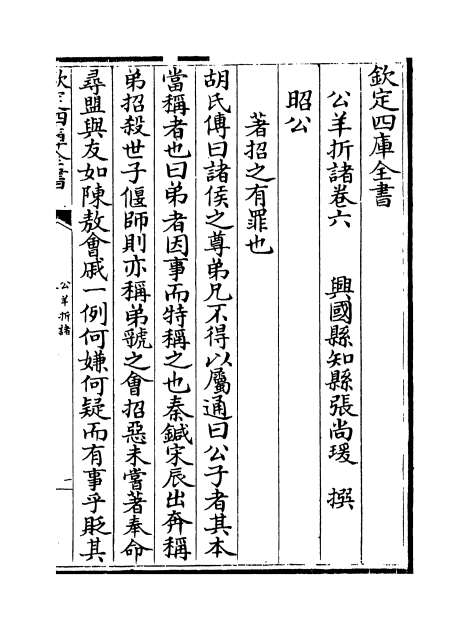 欽定四庫全書
公羊折諸卷六　興國縣知縣張尚瑗　撰
昭公
著招之有罪也
胡氏傳曰諸侯之尊弟兄不得以屬通曰公子者其本
當稱者也曰弟者因事而特稱之也秦鍼宋辰出奔稱
弟招殺世子偃師則亦稱弟虢之會招惡未嘗著奉命
尋盟與友如陳敖會戚一例何嫌何疑而有事乎貶其
欽定四庫全書
公羊折諸
一